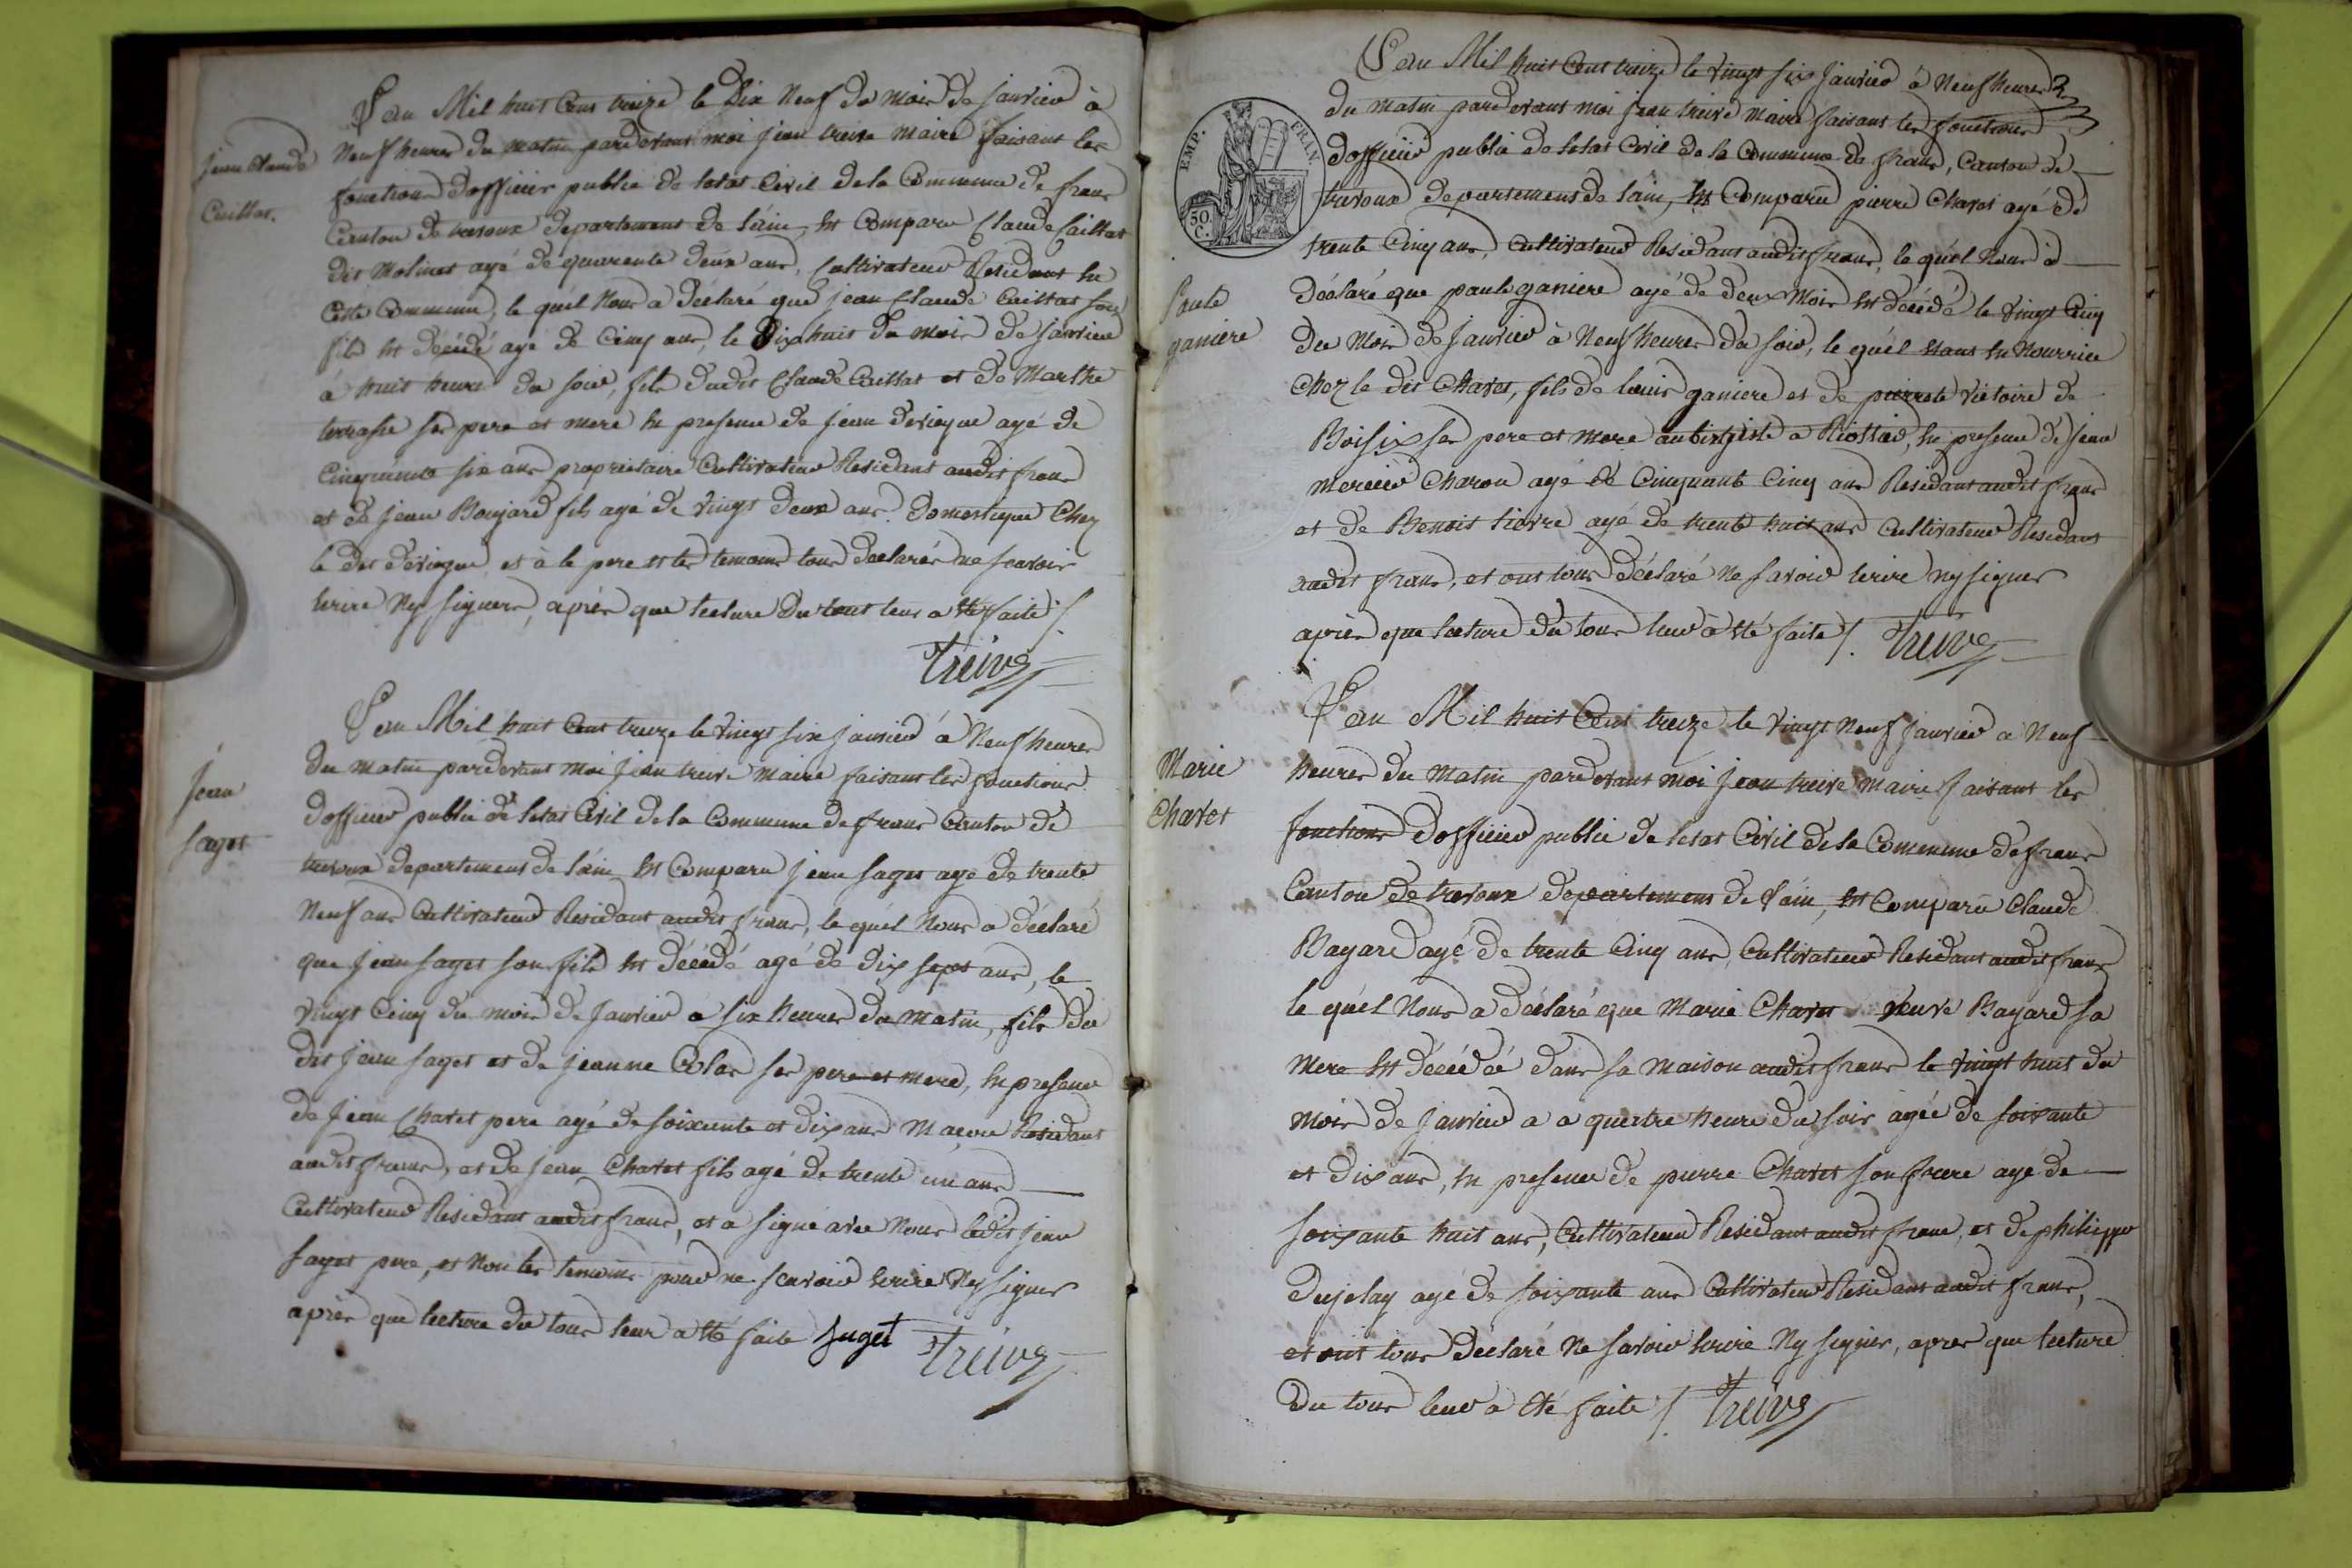 L'an Mil huit Cent treize le Dix Neuf du Mois de janvier à
Neuf heures du matin pardevant moi jean treive Maire faisant les
jean Claude
Caillat.
fonctions d'officier public de letat Civil de la Commune de frans
Canton de trevoux departement de l'ain, Est Comparu Claude Caillat
dit Molinet agé de quarente deux ans, Cultivateur Residant En
Cette Commune, le quél Nous a déclaré que jean Claude Caillat son
fils Est décédé agé de Cinq ans, le Dix huit du mois de janvier
à huit heure du soir, fils dudit Claude Caillat et de Marthe
ses pere et mere En presence de jean devieque agé de
Cinquante six ans proprietaire Cultivateur Residant audit frans
et de jean Boujard fils agé de vingt deux ans domestique Chez
le dit devieque et à le pere et les temoins tous declarés ne scavoir
Ecrire Ny signer, aprés que lecture du tout leur a Eté faite /.
Treive
L'an Mil huit Cent treize le vingt six janvier à Neuf heures
Jean
Saget
du matin pardevant moi jean treive maire faisant les fonctions
dofficier public de letat Civil de la Commune de frans Canton de
trevoux departement de l'ain Est Comparu jean saget agé de trente
Neuf ans Cultivateur Residant audit frans, le quél Nous a déclaré
que jean saget son fils Est décédé agé de dix sept ans, le
vingt Cinq du mois de janvier a six heures du matin, fils du
dit jean saget et de jeanne Colas ses pere et mere, En presence
de jean Chavet pere agé de soixante et dix ans Maçon Residant
audit frans, et de jean Chavet fils agé de trente un ans
Cultivateur Residant audit frans, et a signé avec Nous ledit jean
saget pere, et Non les temoins pour ne scavoir Ecrire Ny signer
aprés que lecture du tout leur a Eté faite Suget Treive
L'an Mil huit Cent treize le vingt six janvier à Neuf heures 3
EMP. FRAN.
50.
C.
du matin pardevant moi jean treive maire faisant les fonctions
d'officier public de letat Civil de la Commune de frans, Canton de
trevoux departement de l'ain, Est Comparu pierre Chavet agé de
trente Cinq ans, Cultivateur Residant audit frans, le quél Nous à
Paule
ganiere
déclaré que paule ganiere agé de deux Mois Est décédé le vingt Cinq
du Mois de janvier à Neuf heures du soir, le quél Etant En Nourrice
Chez le dit Chavet, fils de louis ganiere et de pierrete victoire de
Boisix ses pere et mere En presence de jean
mercier Charon agé de Cinquante Cinq ans Residant audit frans
et de Benoit lievre agé de trente huit ans Cultivateur Residant
audit frans, et ont tous déclaré ne savoir Ecrire ny signer
aprés que lecture du tous leur à Eté faite /. Treive
L'an Mil huit Cent treize le vingt Neuf janvier a Neuf
Marie
Chavet
heures du matin pardevant moi jean treive maire faisant les
fonctions d'officier public de letat Civil de la Commune de frans
Canton de trevoux departement de l'ain, Est Comparu Claude
Bayard agé de trente Cinq ans, Cultivateur Residant audit frans
le quél Nous a déclaré que Marie Chavet veuve Bayard sa
mere Est décédée dans sa maison audit frans le vingt huit du
mois de janvier a a quartre heure du soir agée de soixante
et dix ans, En presence de pierre Chavet son frere agé de
soixante huit ans, Cultivateur Residant audit frans, et de philippe
Dujelay agé de soixante ans Cultivateur Residant audit frans,
et ont tous déclaré Ne savoir Ecrire Ny signer, apres que lecture
du tous leur a Eté faite /. Treive